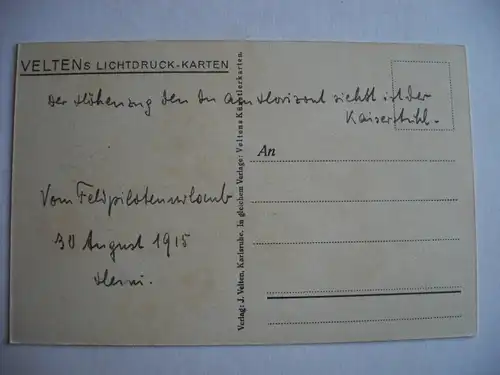 VELTENs LICHTDRUCK-KARTEN
Der Höhenzug den Du am Horizont siehst ist der
Kaiserstuhl.
An
Vom Feldpilotenurlaub
30 August 1915
Verlag: J. Velten, Karlsruhe. In gleichem Verlage: Veltens Künstlerkarten.